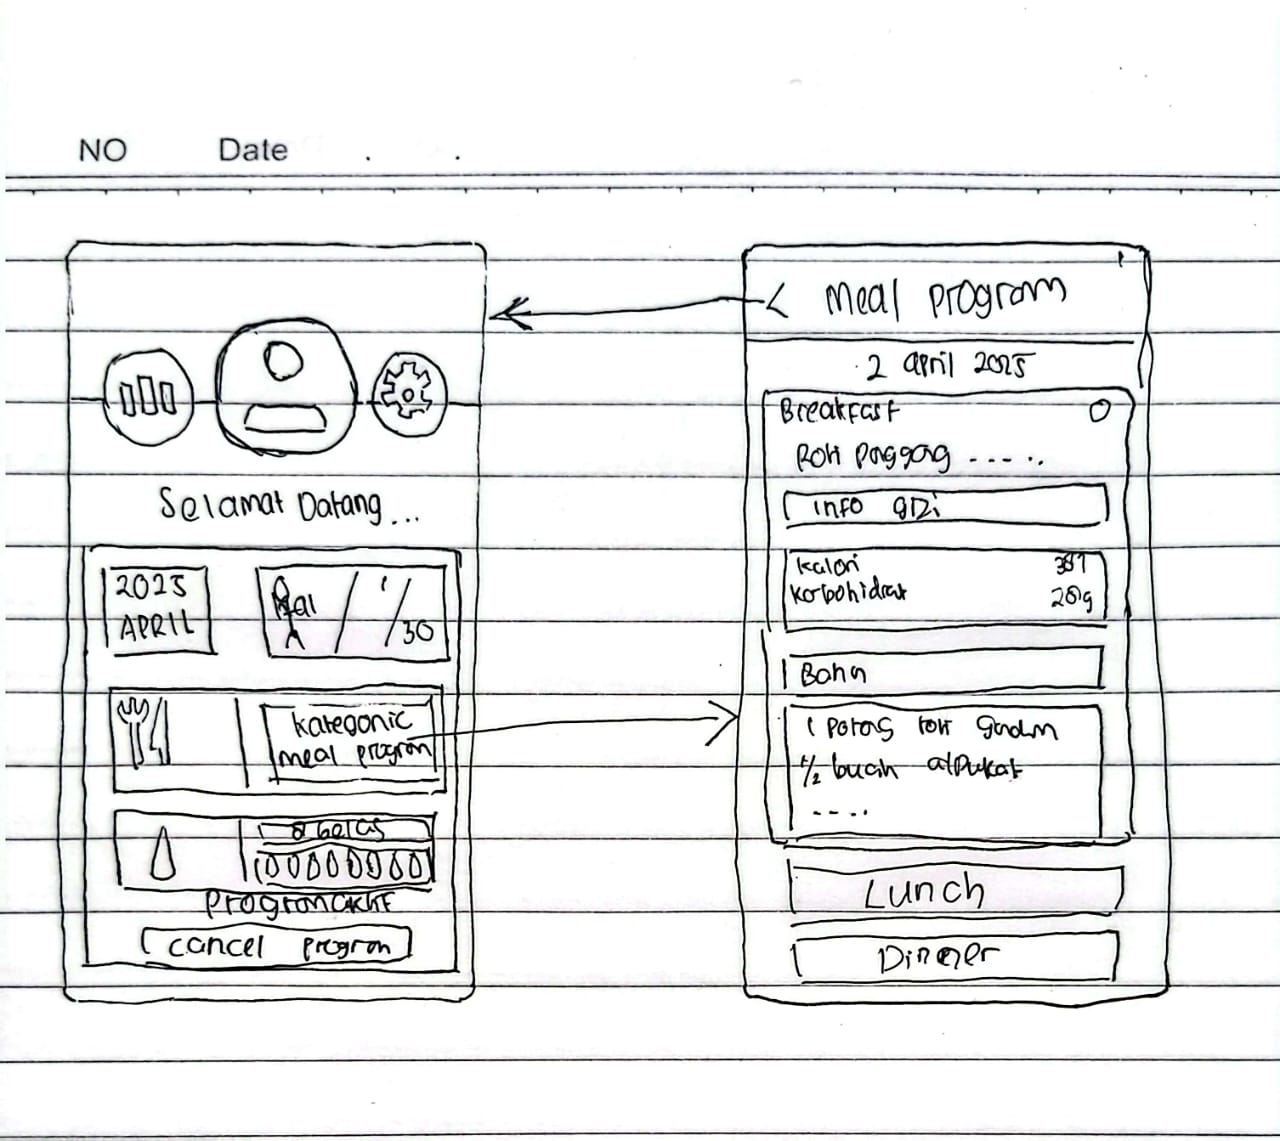 NO Date
Selamat Datang...
2025
APRIL
/30
kategoric
meal program
8 gelas
Program aktif
cancel program
< Meal program
2 april 2025
Breakfast
Roti panggang -----
info gizi
kalori
karbohidrat 28g
Bahn
1 potong roti gandum
1/2 buah alpukat
----
Lunch
Dinner